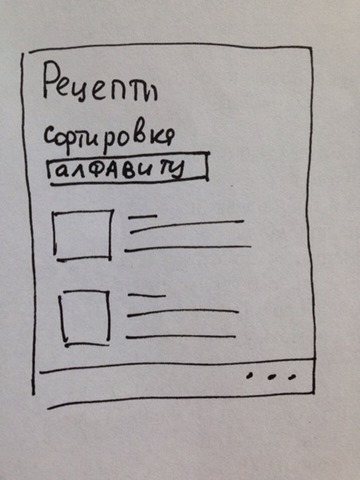 Рецепты
сортировка
алфавиту
...